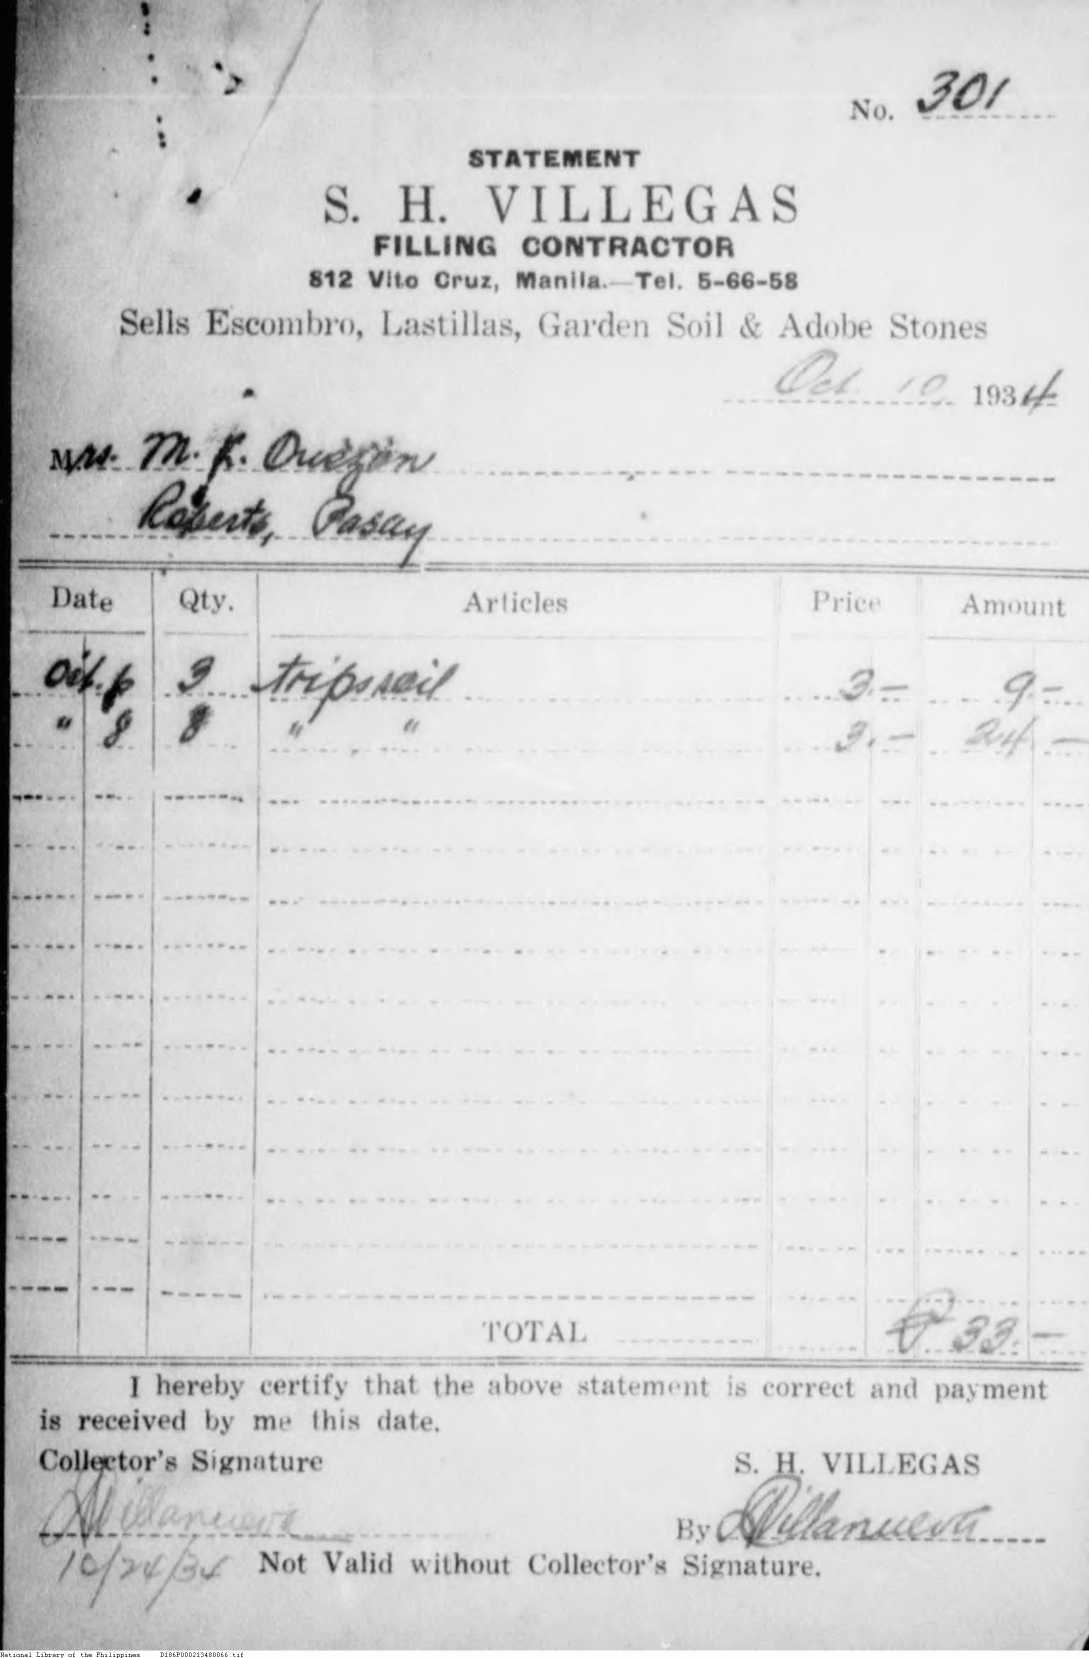 No. 301
STATEMENT
S. H. VILLEGAS
FILLING CONTRACTOR
812 Vito Cruz, Manila.—Tel. 5-66-58
Sells Escombro, Lastillas, Garden Soil & Adobe Stones
Oct 10 1934
Mrs. M. L. Quezon
Roberts, Pasay
Date Qty. Articles Price Amount
Oct. 3 trips soil 3.— 9.—
" 8 8 " " 3.— 24 —
TOTAL ₱ 33.—
I hereby certify that the above statement is correct and payment
is received by me this date.
Collector's Signature S. H. VILLEGAS
Villanueva By Villanueva
10/24/34 Not Valid without Collector's Signature.
National Library of the Philippines D186P000213480066.tif